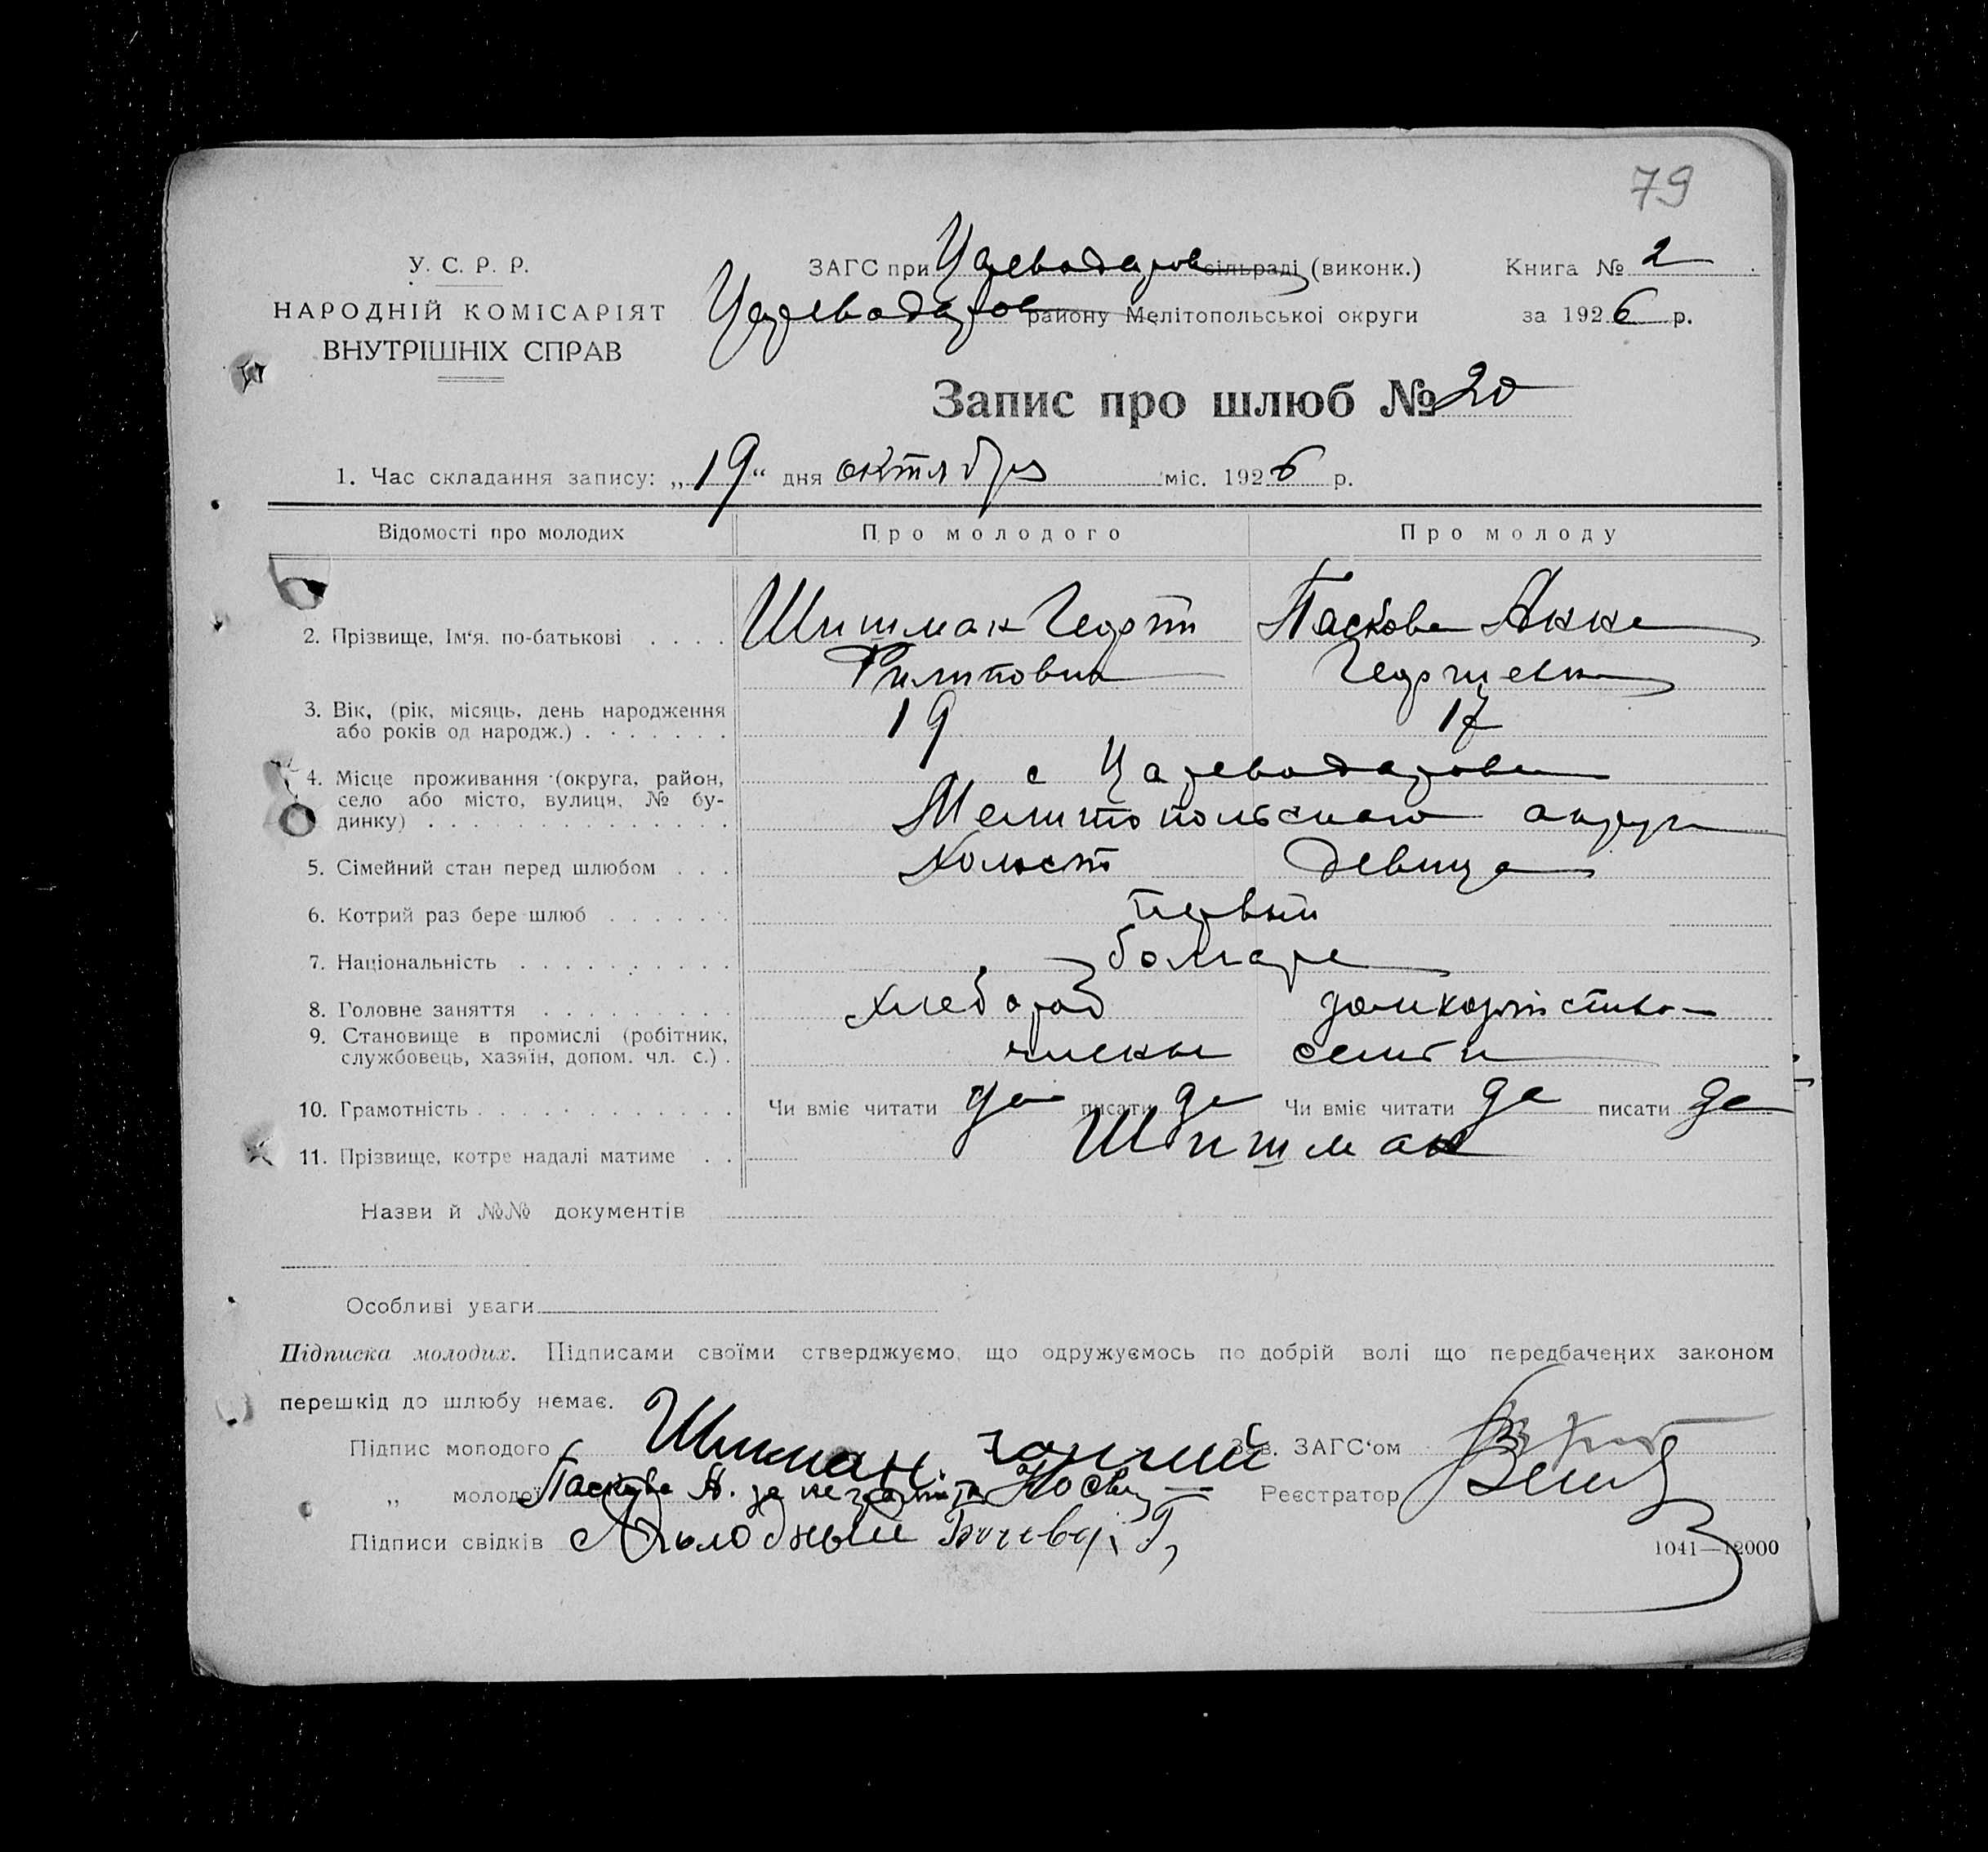 79
У. С. Р. Р.
НАРОДНІЙ КОМІСАРІЯТ
ВНУТРІШНІХ СПРАВ
ЗАГС при Цареводаров сільраді (виконк.)
Цареводаров району Мелітопольської округи
Книга № 2
за 1926 р.
Запис про шлюб № 20
1. Час складання запису: „19“ дня октября міс. 1926 р.
Відомості про молодих Про молодого Про молоду
2. Прізвище, Ім'я. по-батькові . . . . Шишман Георгий Паскова Анна
Филиппович Георгиевна
3. Вік, (рік, місяць, день народження
або років од народж.) . . . . . . . 19 17
4. Місце проживання (округа, район, с Цареводаровка
село або місто, вулиця, № бу-
динку) . . . . . . . . . . . . . . Мелитопольского округа
5. Сімейний стан перед шлюбом . . . Холост девица
6. Котрий раз бере шлюб . . . . . . . первый
7. Національність . . . . . . . . . . болгаре
8. Головне заняття . . . . . . . . . хлебороб
9. Становище в промислі (робітник,
службовець, хазяїн, допом. чл. с.) . члены семьи
10. Грамотність . . . . . . . . . . . . Чи вміє читати да писати да Чи вміє читати да писати да
11. Прізвище, котре надалі матиме . . Шишман
Назви й №№ документів
Особливі уваги
Підписка молодих. Підписами своїми стверджуємо, що одружуємось по добрій волі що передбачених законом
перешкід до шлюбу немає.
Підпис молодого Шишман Зав. ЗАГС'ом
„ молодої Паскова А. за Реєстратор
Підписи свідків
1041—12000